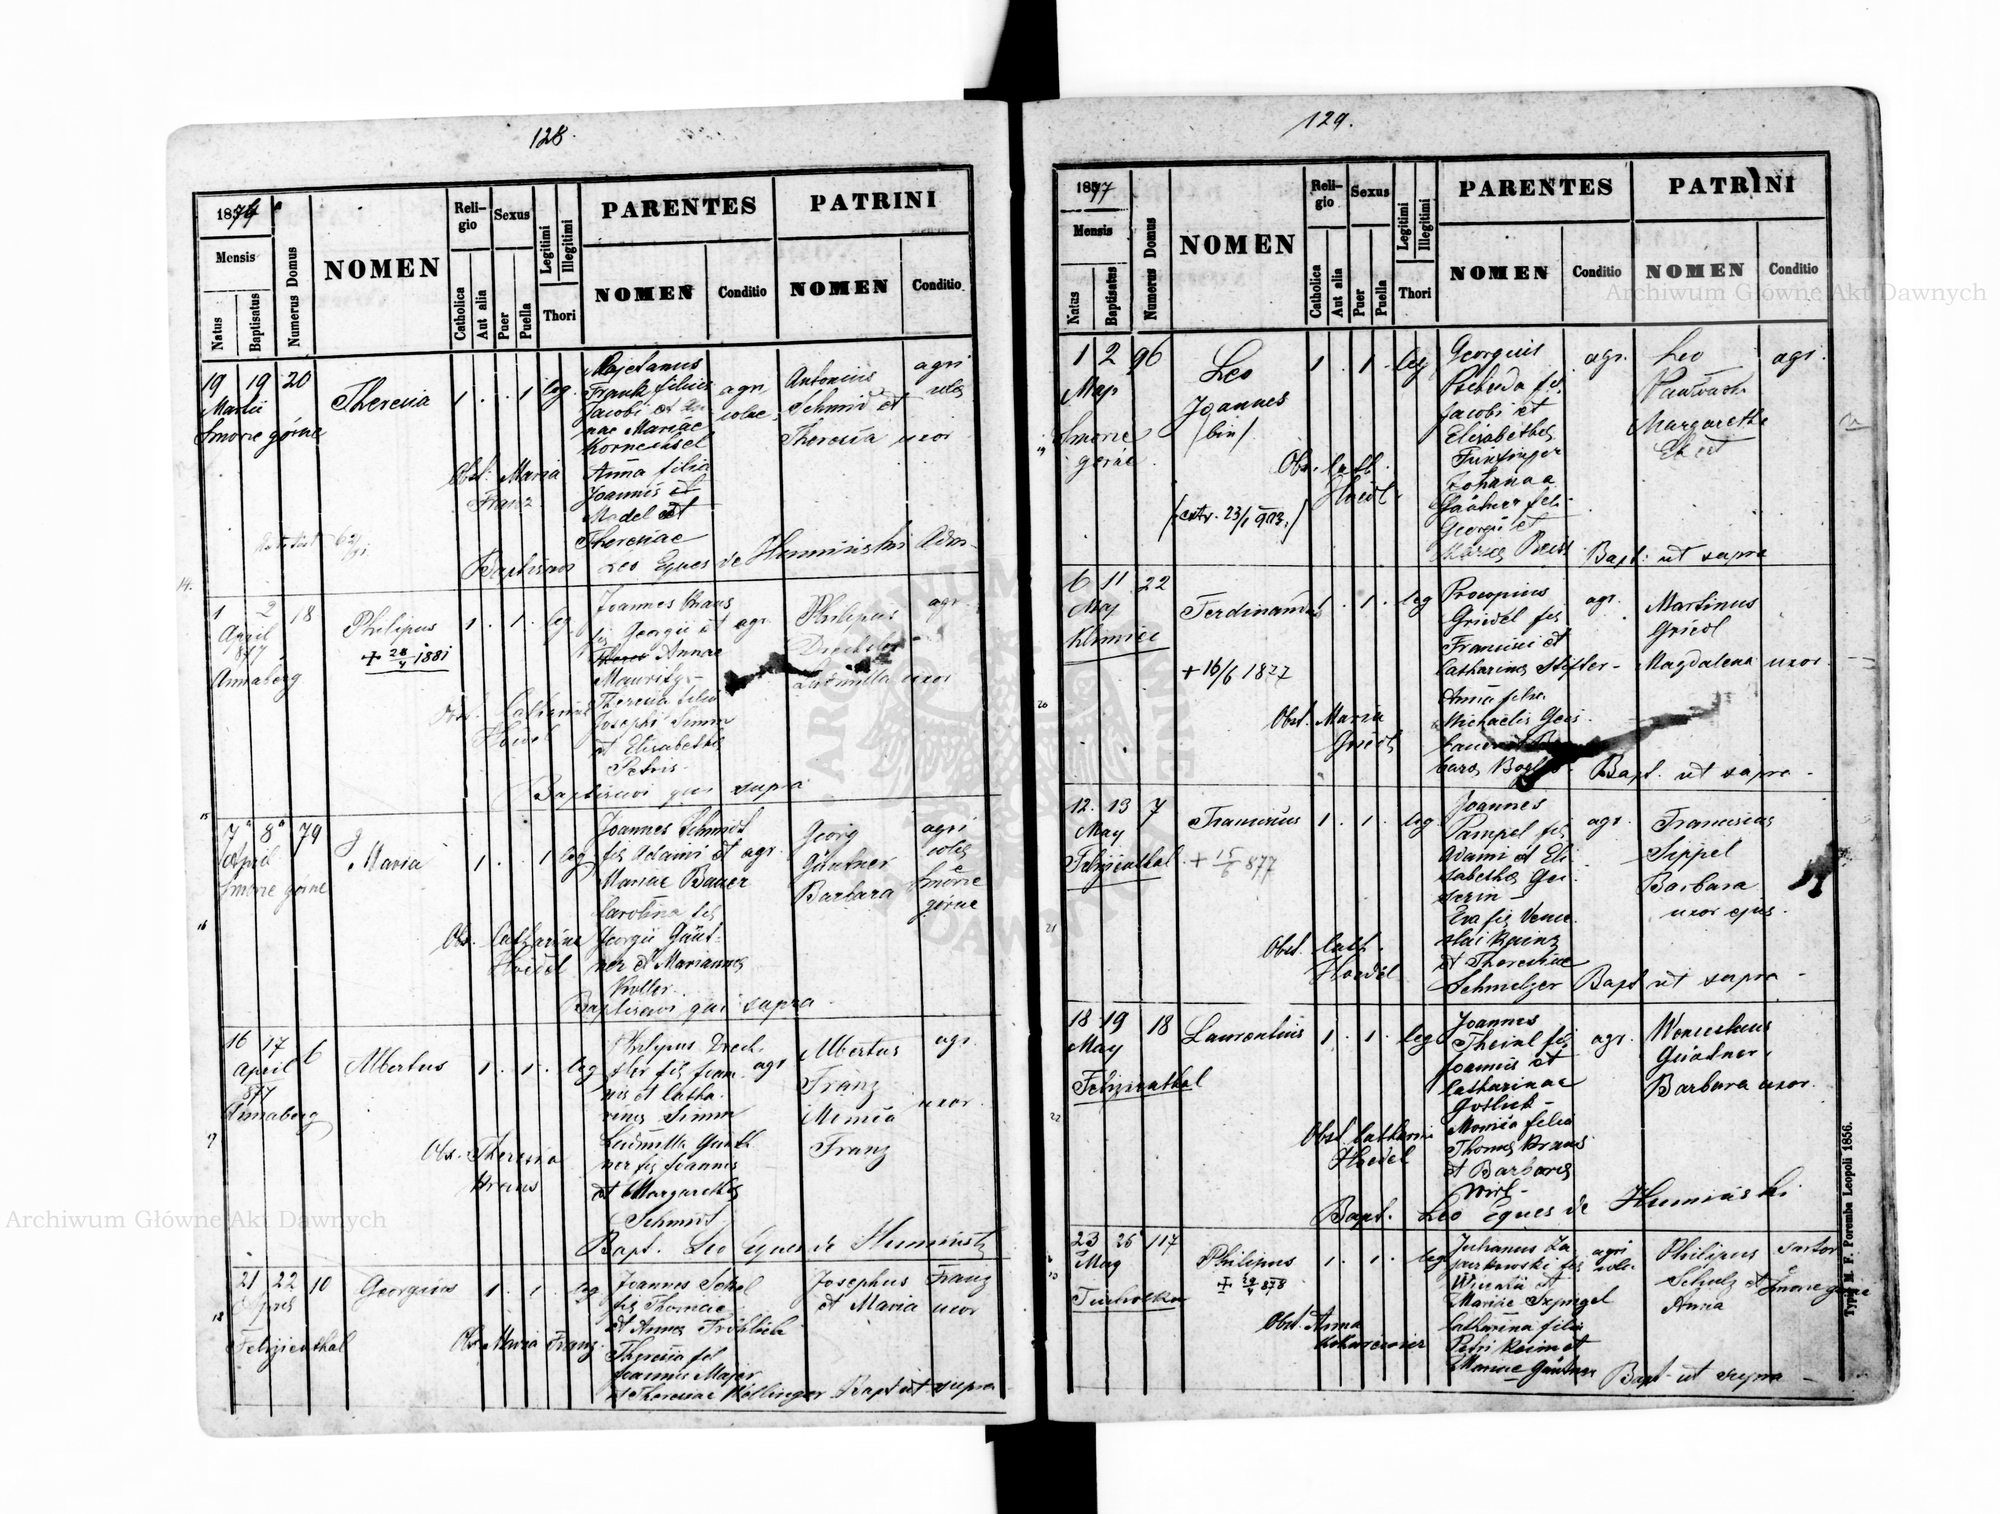 128.
1874
Mensis
Natus
Baptisatus
Numerus Domus
NOMEN
Religio
Catholica
Aut alia
Sexus
Puer
Puella
Legitimi
Illegitimi
Thori
PARENTES
NOMEN
Conditio
PATRINI
NOMEN
Conditio
19 19 20
Martii
Smorze górne
Theresia
1 . . 1 leg.
Kajetanus
Frank filius
Jacobi et An-
nae Mariae
Kornechsel
Anna filia
Joannis et
Madel et
Theresiae
agri
colae
Antonius
Schmid et
Theresia uxor
agri
colae
Obst. Maria
Franz
Baptisavi Leo Eques de Humiński Adm.
14.
1 2 18
April
877
Annaberg
Philipus
+ 28/4 1881
1 . 1 . leg
Joannes Kraus
fil Georgii et agr.
Annae
Mauritz
Theresia filia
Josephi Simm
et Elisabethae
Petris
Philipus
Drechsler
Ludmilla uxor
agr.
Obst. Catharina
Hoedl
Baptisavi qui supra
15
7 8 79
April
Smorze górne
Maria
1 . . 1 leg
Joannes Schmidt
fil Adami et agr.
Mariae Bauer
Carolina fil
Georgii Günt-
ner et Mariannae
Kroller
Georg
Güntner
Barbara
agri
colae
Smorze
górne
Obst. Catharina
Hoedl
Baptisavi qui supra
16
16 17 6
April
877
Annaberg
Albertus
1 . 1 . leg
Philipus Drech-
sler fil Joan- agr
nis et Catha-
rinae Simm
Ludmilla Günt-
ner fil Joannis
et Margarethae
Schmidt
Albertus
Franz
Monica uxor
Franz
agr.
Obst. Theresia
Kraus
Bapt. Leo Eques de Humiński
17
21 22 10
Aprilis
Felizienthal
Georgius
1 . 1 . leg
Joannes Sokel
fil Thomae
et Annae Fröhlich
Theresia fil
Joannis Majer
et Theresiae Köllinger
Josephus Franz
et Maria uxor
Obst. Maria Franz
Bapt ut supra
18
129.
1877
Mensis
Natus
Baptisatus
Numerus Domus
NOMEN
Religio
Catholica
Aut alia
Sexus
Puer
Puella
Legitimi
Illegitimi
Thori
PARENTES
NOMEN
Conditio
PATRINI
NOMEN
Conditio
1 2 96
May
Smorze
gorne
Leo
Joannes
/bin/
/extr. 23/1 903./
1 . 1 . leg
Georgius
Pscheida fil.
Jacobi et
Elisabethae
Johanna
fil.
Georgii et
agr.
Leo
Margaretha
agr.
Obst. Cath.
Hoedl
Bapt. ut supra
19
6 11 22
May
Klimiec
Ferdinandus
+ 16/6 1877
1 . 1 . leg
Procopius
Griedel fil
Francisci et
Catharinae Stifter
Anna filia
Michaelis Geis
agr.
Martinus
Griedl
Magdalena uxor
Obst. Maria
Griedl
Bapt. ut supra
20
12. 13 7
May
Felizienthal
Franciscus
+ 15/6 877
1 . 1 . leg
Joannes
Pampel fil
Adami et Eli
sabethae Gei
serin
Eva fil Vence
slai Rainz
et Theresiae
Schmelzer
agr.
Franciscus
Sippel
Barbara
uxor ejus.
Obst. Cath.
Hoedl
Bapt ut supra
21
18 19 18
May
Felizienthal
Laurentius
1 . 1 . leg
Joannes
Theinl fil
Joannis et
Catharinae
Gotlieb
Monica filia
Thomae Kraus
et Barbarae
Wirl
agr.
Wenceslaus
Güntner,
Barbara uxor.
Obst Catharina
Hoedel
Bapt. Leo Eques de Humiński
22
23 26 117
May
Tucholka
Philipus
+ 29/4 878
1 . 1 . leg
Julianus Za
jarkowski fil
Vincentii et
Mariae Szpingel
Catharina filia
Petri Keim et
Mariae Güntner
agri
colae
Philipus sartor
Schulz et Smorze górne
Anna
Obst. Anna
Bapt. ut supra
Typis M. F. Poremba Leopoli 1856.
Archiwum Główne Akt Dawnych
Archiwum Główne Akt Dawnych
ARCHIWUM GŁÓWNE AKT DAWNYCH